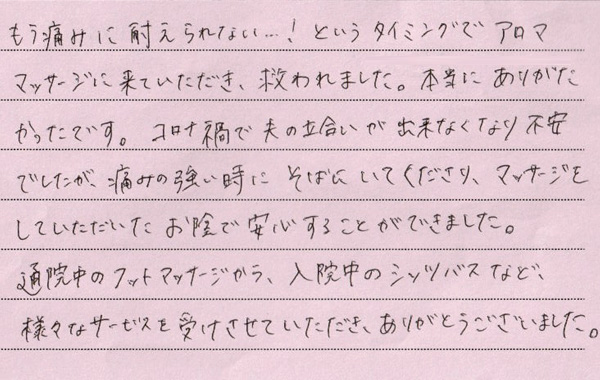 もう痛みに耐えられない…!というタイミングでアロマ
マッサージに来ていただき、救われました。本当にありがた
かったです。コロナ禍で夫の立合いが出来なくなり不安
でしたが、痛みの強い時にそばにいてくださり、マッサージを
していただいたお陰で安心することができました。
通院中のフットマッサージから、入院中のシッツバスなど、
様々なサービスを受けさせていただき、ありがとうございました。